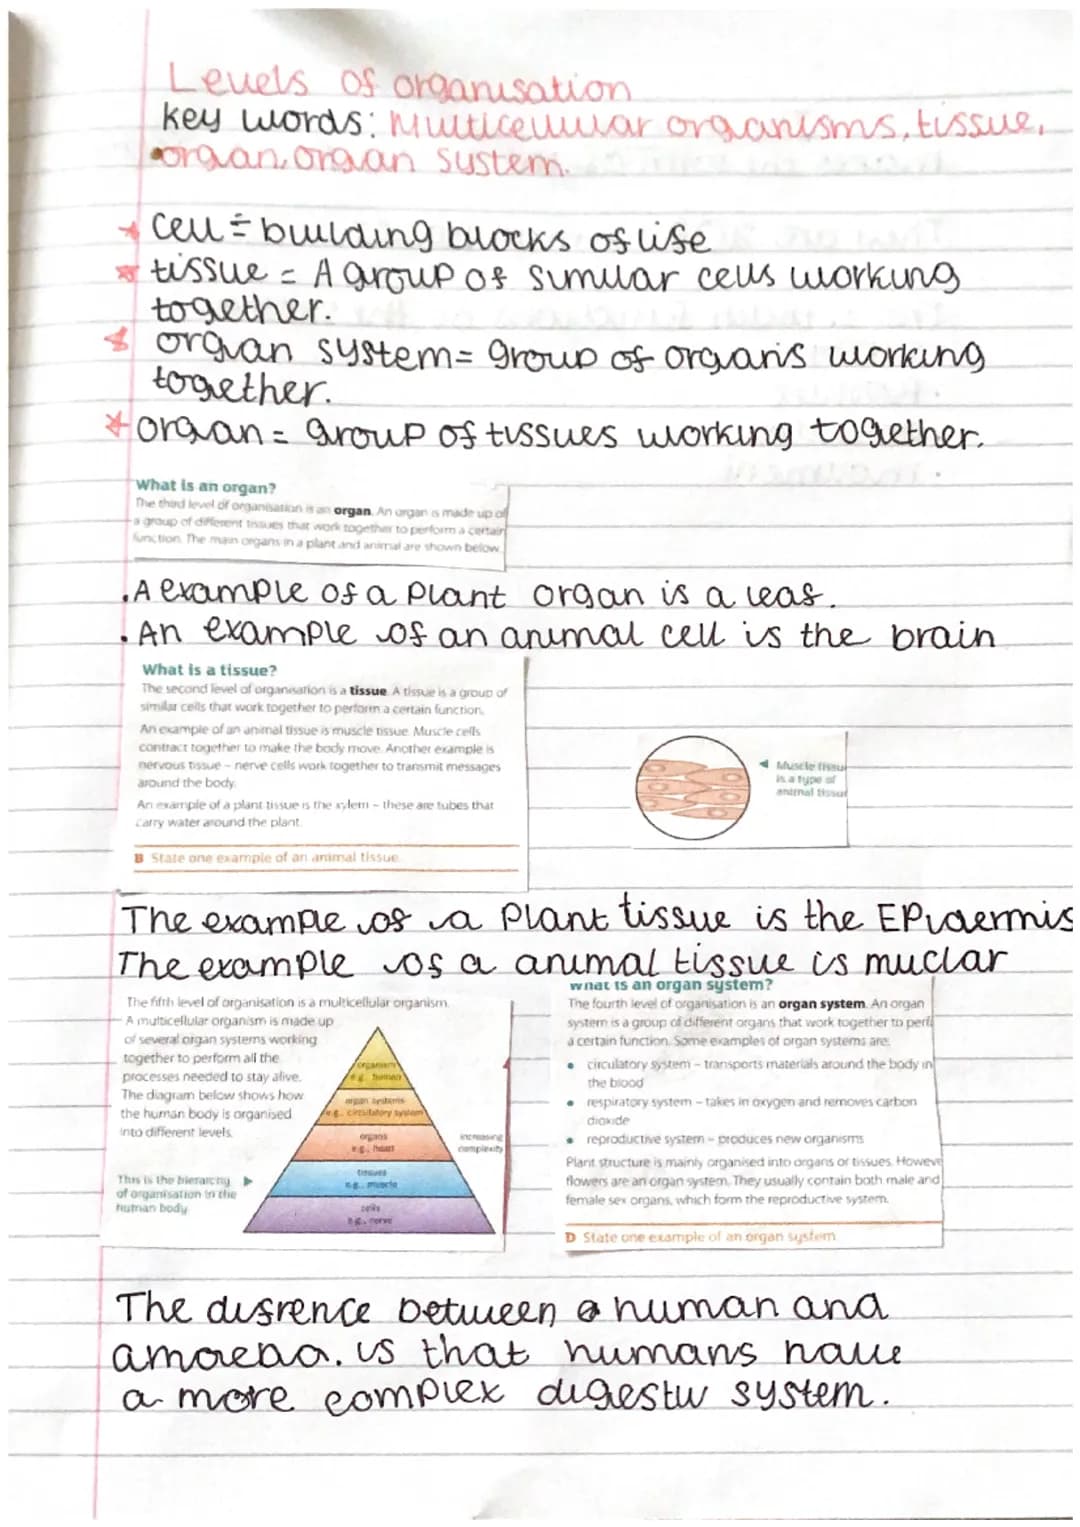 Levels of organisation
key words: Multicellular organisms, tissue,
organ, organ system.
cell = building blocks of life
tissue = A group of similar cells working
together.
organ system = group of organs working
together.
organ = group of tissues working together.
What is an organ?
The third level of organisation is an organ. An organ is made up of
a group of different tissues that work together to perform a certain
function. The main organs in a plant and animal are shown below.
. A example of a Plant organ is a leaf.
. An example of an animal cell is the brain
What is a tissue?
The second level of organisation is a tissue. A tissue is a group of
similar cells that work together to perform a certain function.
An example of an animal tissue is muscle tissue. Muscle cells
contract together to make the body move. Another example is
nervous tissue – nerve cells work together to transmit messages
around the body.
An example of a plant tissue is the xylem – these are tubes that
carry water around the plant.
B State one example of an animal tissue.
◄ Muscle tissu
is a type of
animal tissu
The example of a Plant tissue is the EPidermis
The example of a animal tissue is muclar
The fifth level of organisation is a multicellular organism.
A multicellular organism is made up
of several organ systems working
together to perform all the
processes needed to stay alive.
The diagram below shows how
the human body is organised
into different levels.
This is the hierarchy ►
of organisation in the
human body
organism
e.g. human
organ systems
e.g., circulatory system
organs
e.g., heart
tissues
e.g., muscle
cells
e.g., nerve
increasing
complexity
What is an organ system?
The fourth level of organisation is an organ system. An organ
system is a group of different organs that work together to perf
a certain function. Some examples of organ systems are:
• circulatory system – transports materials around the body in
the blood
• respiratory system – takes in oxygen and removes carbon
dioxide
• reproductive system – produces new organisms
Plant structure is mainly organised into organs or tissues. Howeve
flowers are an organ system. They usually contain both male and
female sex organs, which form the reproductive system.
D State one example of an organ system.
The disrence between a human and
amoeba. is that humans have
a more complex digestiv system.